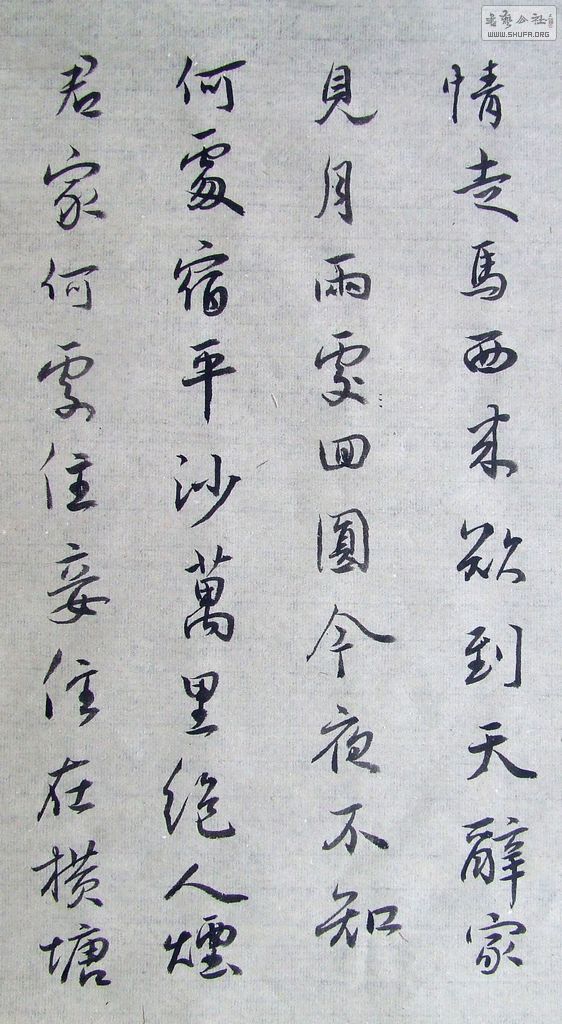 情走馬西来欲到天辭家
見月兩處回圓今夜不知
何處宿平沙萬里絕人煙
君家何處住妾住在橫塘
書藝公社
WWW.SHUFA.ORG